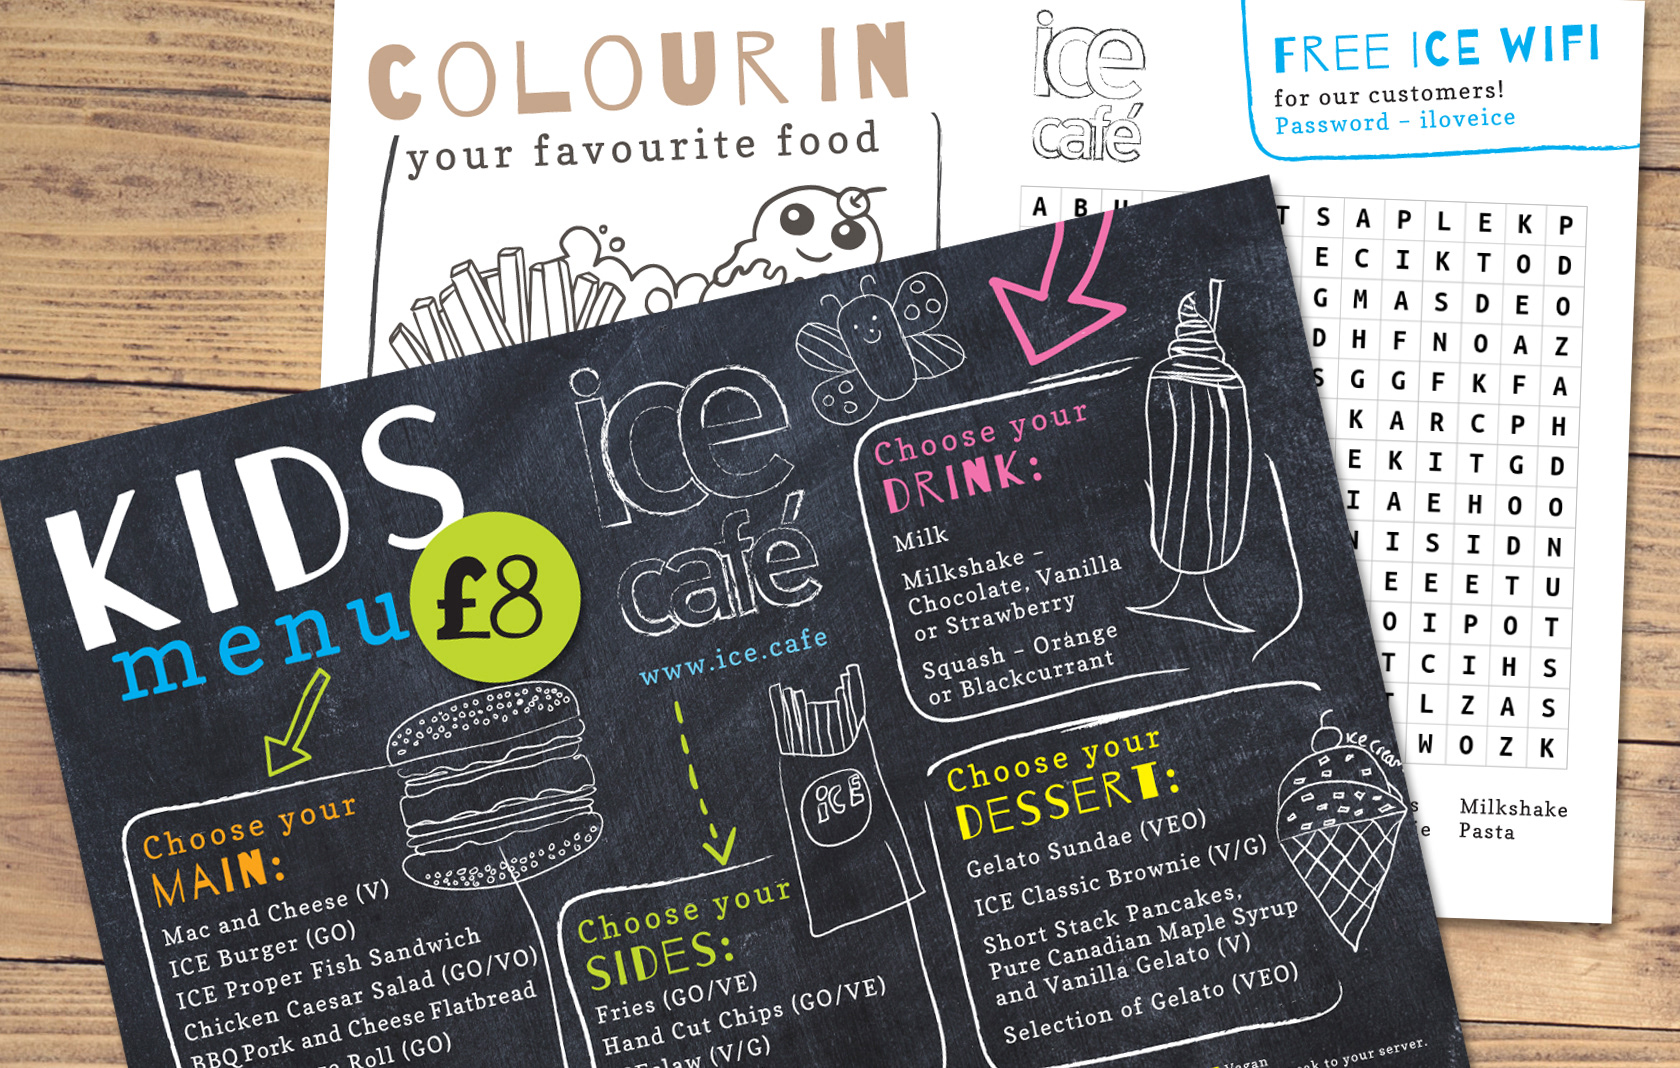 COLOUR IN
your favourite food
ice
café
FREE ICE WIFI
for our customers!
Password – iloveice
A B U
T S A P L E K P
E C I K T O D
G M A S D E O
D H F N O A Z
S G G F K F A
K A R C P H
E K I T G D
I A E H O O
N I S I D N
E E E T U
O I P O T
T C I H S
L Z A S
W O Z K
Milkshake
Pasta
KIDS
menu
£8
ice
café
www.ice.cafe
Choose your
MAIN:
Mac and Cheese (V)
ICE Burger (GO)
ICE Proper Fish Sandwich
Chicken Caesar Salad (GO/VO)
BBQ Pork and Cheese Flatbread
Roll (GO)
Choose your
SIDES:
Fries (GO/VE)
Hand Cut Chips (GO/VE)
(V/G)
ICE
Choose your
DRINK:
Milk
Milkshake –
Chocolate, Vanilla
or Strawberry
Squash – Orange
or Blackcurrant
Choose your
DESSERT:
Gelato Sundae (VEO)
ICE Classic Brownie (V/G)
Short Stack Pancakes,
Pure Canadian Maple Syrup
and Vanilla Gelato (V)
Selection of Gelato (VEO)
ice cream
Vegan
to your server.